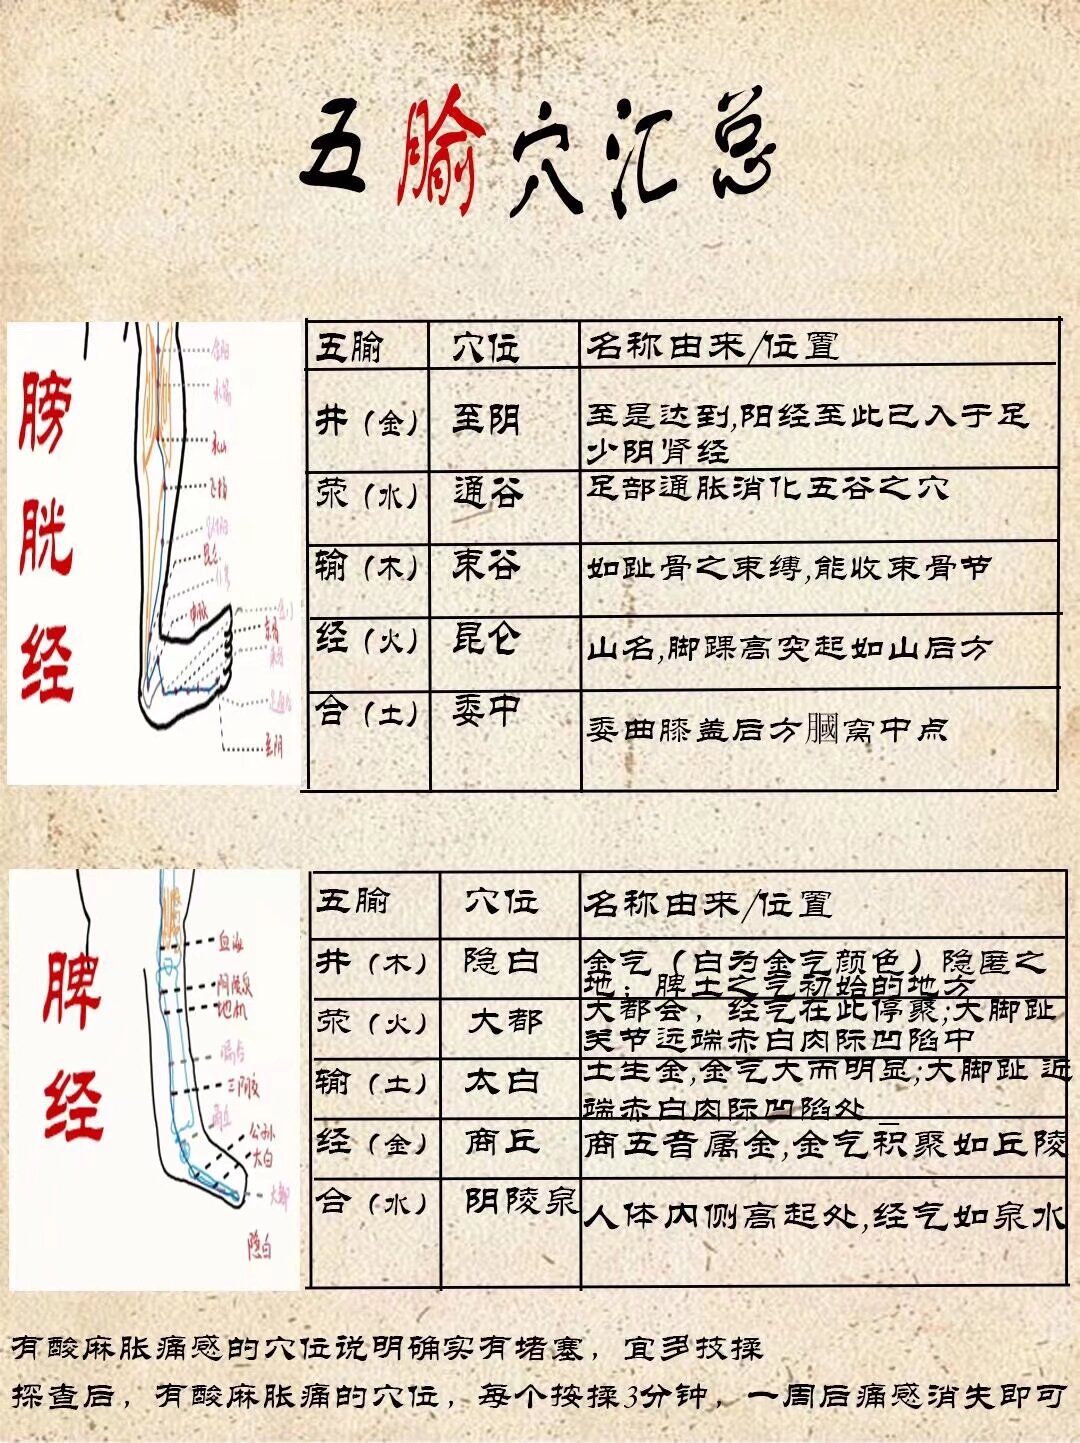 五腧穴汇总
膀胱经
五腧 穴位 名称由来/位置
井（金） 至阴 至是达到,阳经至此已入于足
少阴肾经
荥（水） 通谷 足部通胀消化五谷之穴
输（木） 束谷 如趾骨之束缚,能收束骨节
经（火） 昆仑 山名,脚踝高突起如山后方
合（土） 委中 委曲膝盖后方腘窝中点
承山
飞扬
昆仑
申脉
束骨
至阴
脾经
五腧 穴位 名称由来/位置
井（木） 隐白 金气（白为金气颜色）隐匿之
地；脾土之气初始的地方
荥（火） 大都 大都会，经气在此停聚;大脚趾
关节远端赤白肉际凹陷中
输（土） 太白 土生金,金气大而明显;大脚趾 近
端赤白肉际凹陷处_
经（金） 商丘 商五音属金,金气积聚如丘陵
合（水） 阴陵泉 人体内侧高起处,经气如泉水
血海
阴陵泉
地机
漏谷
三阴交
商丘
公孙
太白
大都
隐白
有酸麻胀痛感的穴位说明确实有堵塞，宜多技揉
探查后，有酸麻胀痛的穴位，每个按揉3分钟，一周后痛感消失即可